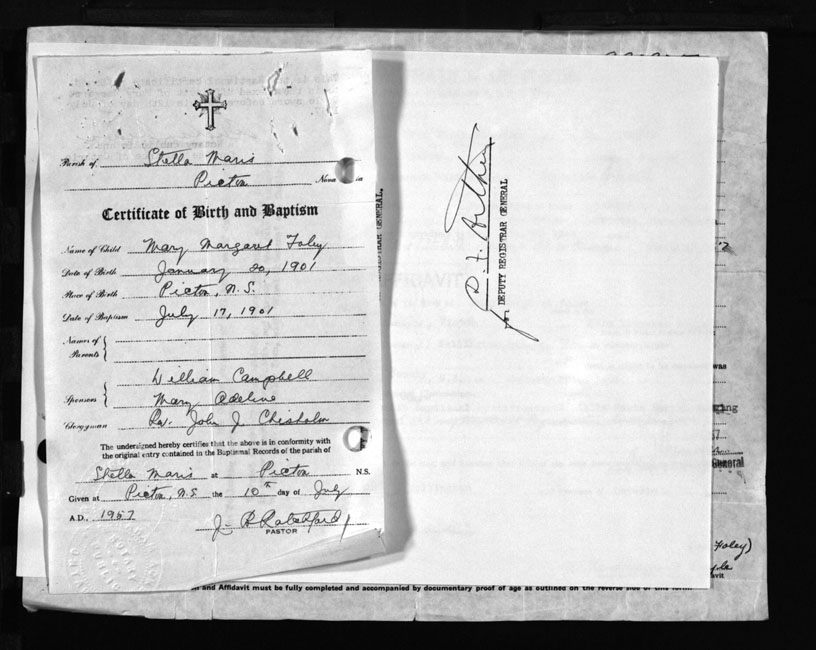 Parish of Stella Maris
Pictou Nova ia
Certificate of Birth and Baptism
Name of Child Mary Margaret Foley
Date of Birth January 20, 1901
Place of Birth Pictou, N.S.
Date of Baptism July 17, 1901
Names of
Parents
William Campbell
Sponsors Mary Adeline
Clergyman Rev. John J. Chisholm
The undersigned hereby certifies that the above is in conformity with
the original entry contained in the Baptismal Records of the parish of
Stella Maris at Pictou N.S.
Given at Pictou, N.S. the 10th day of July
A.D. 1957
PASTOR
for DEPUTY REGISTRAR GENERAL
TRAR GENERAL.
was
General
Foley)
avit
and Affidavit must be fully completed and accompanied by documentary proof of age as outlined on the reverse side of this form